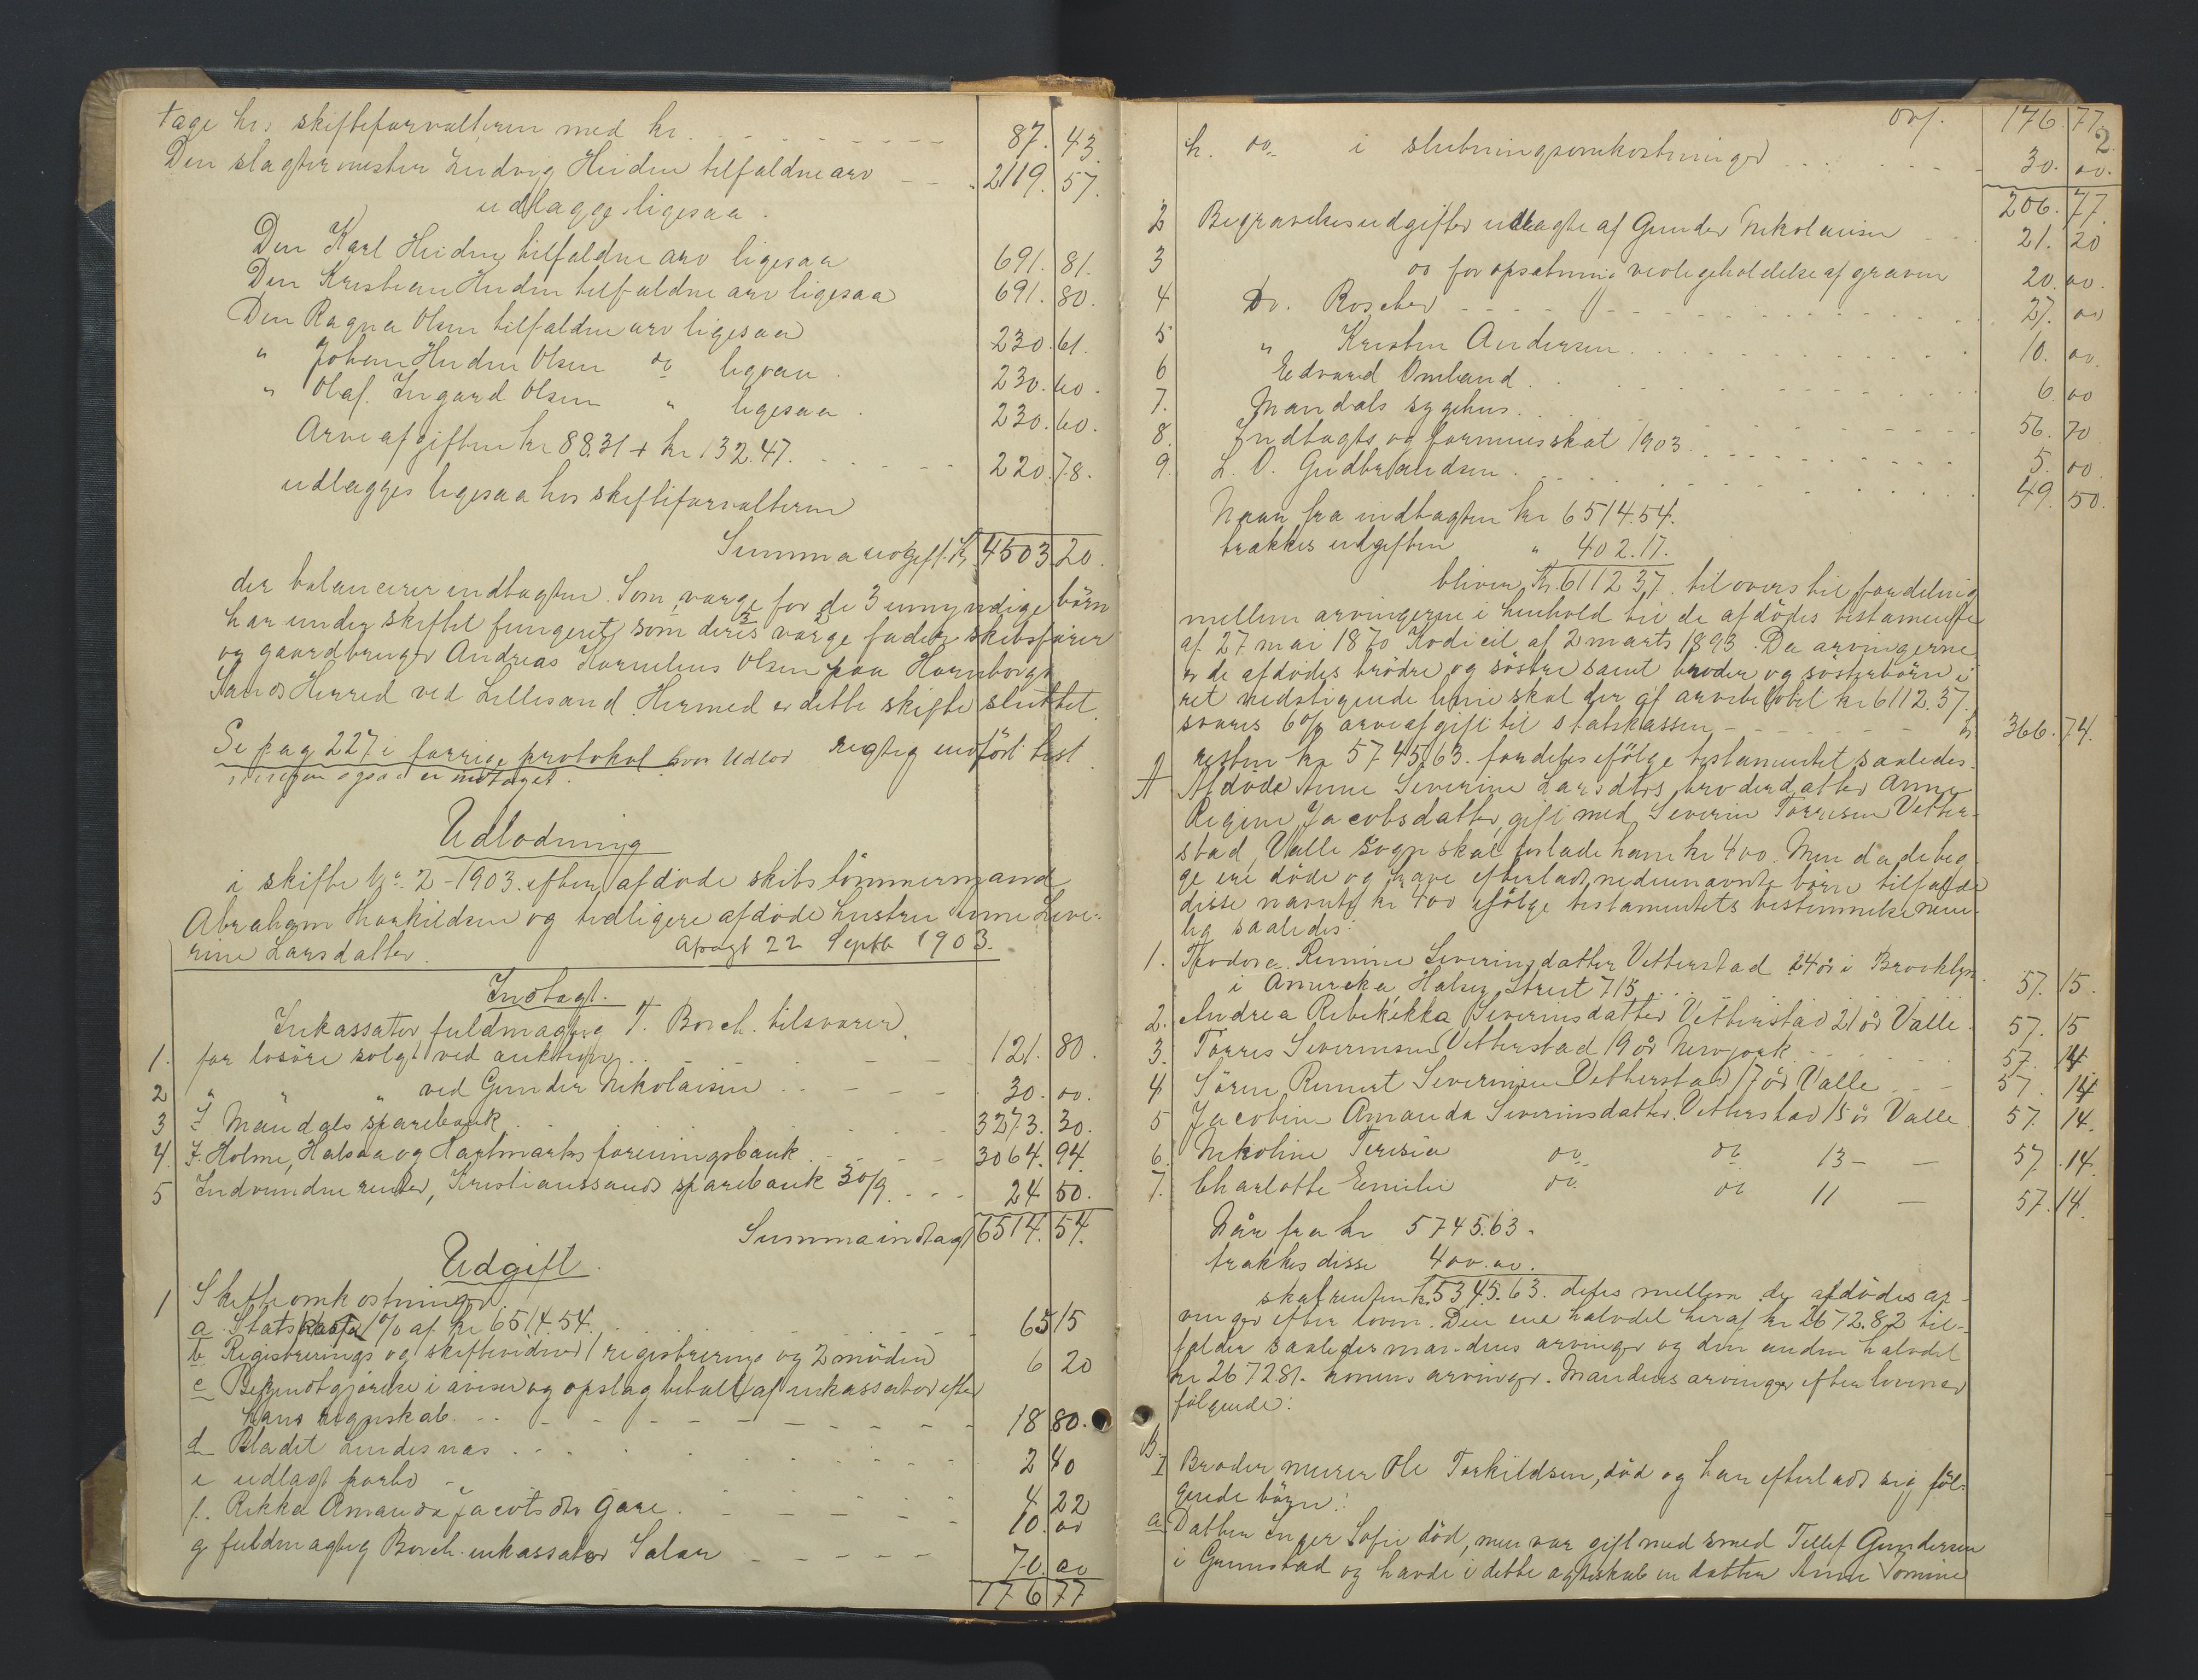 tage hos skifteforvalteren med kr. 87. 43.
Den slagtermester Ludvig Heiden tilfaldne arv 2119. 57.
udlægges ligesaa.
Den Karl Heiden tilfaldne arv ligesaa 691. 81.
Den Kristian Heiden tilfaldne arv ligesaa 691. 80.
Den Ragna Olsen tilfaldne arv ligesaa 230. 61.
" Johan Heiden Olsen do ligesaa. 230. 60.
" Olaf Ingard Olsen " ligesaa. 230. 60.
Arveafgiften kr 88.31 + kr 132.47. 220. 78.
udlægges ligesaa hos skifteforvalteren
Summa udgift kr 4503. 20.
der balancerer indtægten. Som værge for de 3 umyndige börn
har under skiftet fungeret som deres værge faderen skibsfører
og gaardbruger Andreas Kornelius Olsen paa Hornborg
Sands Herred ved Lillesand. Hermed er dette skifte sluttet.
Se pag 227 i forrige protokol hvor Udlod rigtig indført test.
ningen ogsaa er indtaget.
Udlodning
i skifte No. 2 - 1903. efter afdöde skibstömmermand
Abraham Thorkildsen og tidligere afdöde hustru Anne Seve-
rine Larsdatter. afsagt 22 Septb 1903.
Indtægt.
Inkassator fuldmægtig T. Borch. tilsvarer
1. for lösöre solgt ved auktion 121. 80.
2 " " " ved Gunder Nikolaisen 30. 00.
3 I Mandals sparebank 3273. 30.
4. I. Holme, Halsaa og Hartmarks foreningsbank 3064. 94.
5 Indvundne renter, Kristianssands sparebank 30/9 24 50.
Summa indtægt 6514. 54.
Udgift.
1 Skifteomkostninger.
a Statskassen 1% af kr 6514.54. 65 15
b Registrerings og skiftevidner 1 registrering og 2 möder 6 20
c Bekjendtgjörelse i aviser og opslag betalt af inkassator efter
hans regnskab. 18 80.
d Bladet Lindesnæs 2 40
e udlagt porto 4 22
f. Rikka Amanda Jacobsdtr Gare. 10. 00
g fuldmægtig Borch inkassator Salær 70. 00
176 77
2
ovf. 176. 77
h. do i slutningsomkostninger 30. 00.
206. 77.
2 Begravelsesudgifter udlagte af Gunder Nikolaisen 21. 20
3 do for opsætning vedligeholdelse af graven 20. 00.
4 Dr. Roscher 27. 00
5 " Kristen Andersen. 10. 00
6 Edvard Omland. 6. 00
7. Mandals sygehus. 56. 70
8. Indtægts og formuesskat 1903 5. 00
9. L. O. Gudbrandsen. 49. 50.
Naar fra indtægten kr 6514.54.
trækkes udgiften " 402.17.
bliver Kr. 6112.37. tilovers til fordeling
mellem arvingerne i henhold til de afdödes testamente
af 27 mai 1870 Kodicil af 2 marts 1893. Da arvingerne
er de afdödes brödre og söstre samt broder og sösterbörn i
ret nedstigende linie skal der af arvebelöbet kr 6112.37.
svares 6% arveafgift til statskassen kr 366. 74.
resten kr 5745.63. fordeles ifölge testamentet saaledes.
A Afdöde Anne Severine Larsdtrs broderdatter Anne
Regine Jacobsdatter gift med Severin Torresen Vetter-
stad, Valle Sogn skal forlods have kr 400. Men da de beg-
ge ere döde og have efterladt nedennævnte börn tilfalder
disse nævnte kr 400 ifölge testamentets bestemmelse nem-
lig saaledes:
1. Teodore Remine Severinsdatter Vetterstad 24 år i Brooklyn
i Amerika Halsey Street 715 57. 15.
2. Andrea Rebekikka Severinsdatter Vetterstad 21 år Valle. 57. 15
3. Torres Severinsen Vetterstad 19 år Newyork 57. 14
4 Sören Reinert Severinsen Vetterstad 17 år Valle 57. 14
5 Jacobine Amanda Severinsdatter Vetterstad 15 år Valle 57. 14.
6. Nikoline Teresia do do 13 - - 57. 14.
7. Charlotte Emilie do do 11 - 57. 14.
Når fra kr 5745.63.
trækkes disse 400.00.
skal resten kr. 5345.63. deles mellem de afdödes ar-
vinger efter loven. Den ene halvdel heraf kr 2672.82 til-
falder saaledes mandens arvinger og den anden halvdel
kr 2672.81. konens arvinger. Mandens arvinger efter loven er
fölgende:
B.
I Broder murer Ole Torkildsen, död og har efterladt sig föl-
gende börn:
a Datter Inger Sofie död, men var gift med smed Tellef Gundersen
i Grimstad og havde i dette ægteskab en datter Anne Tomine